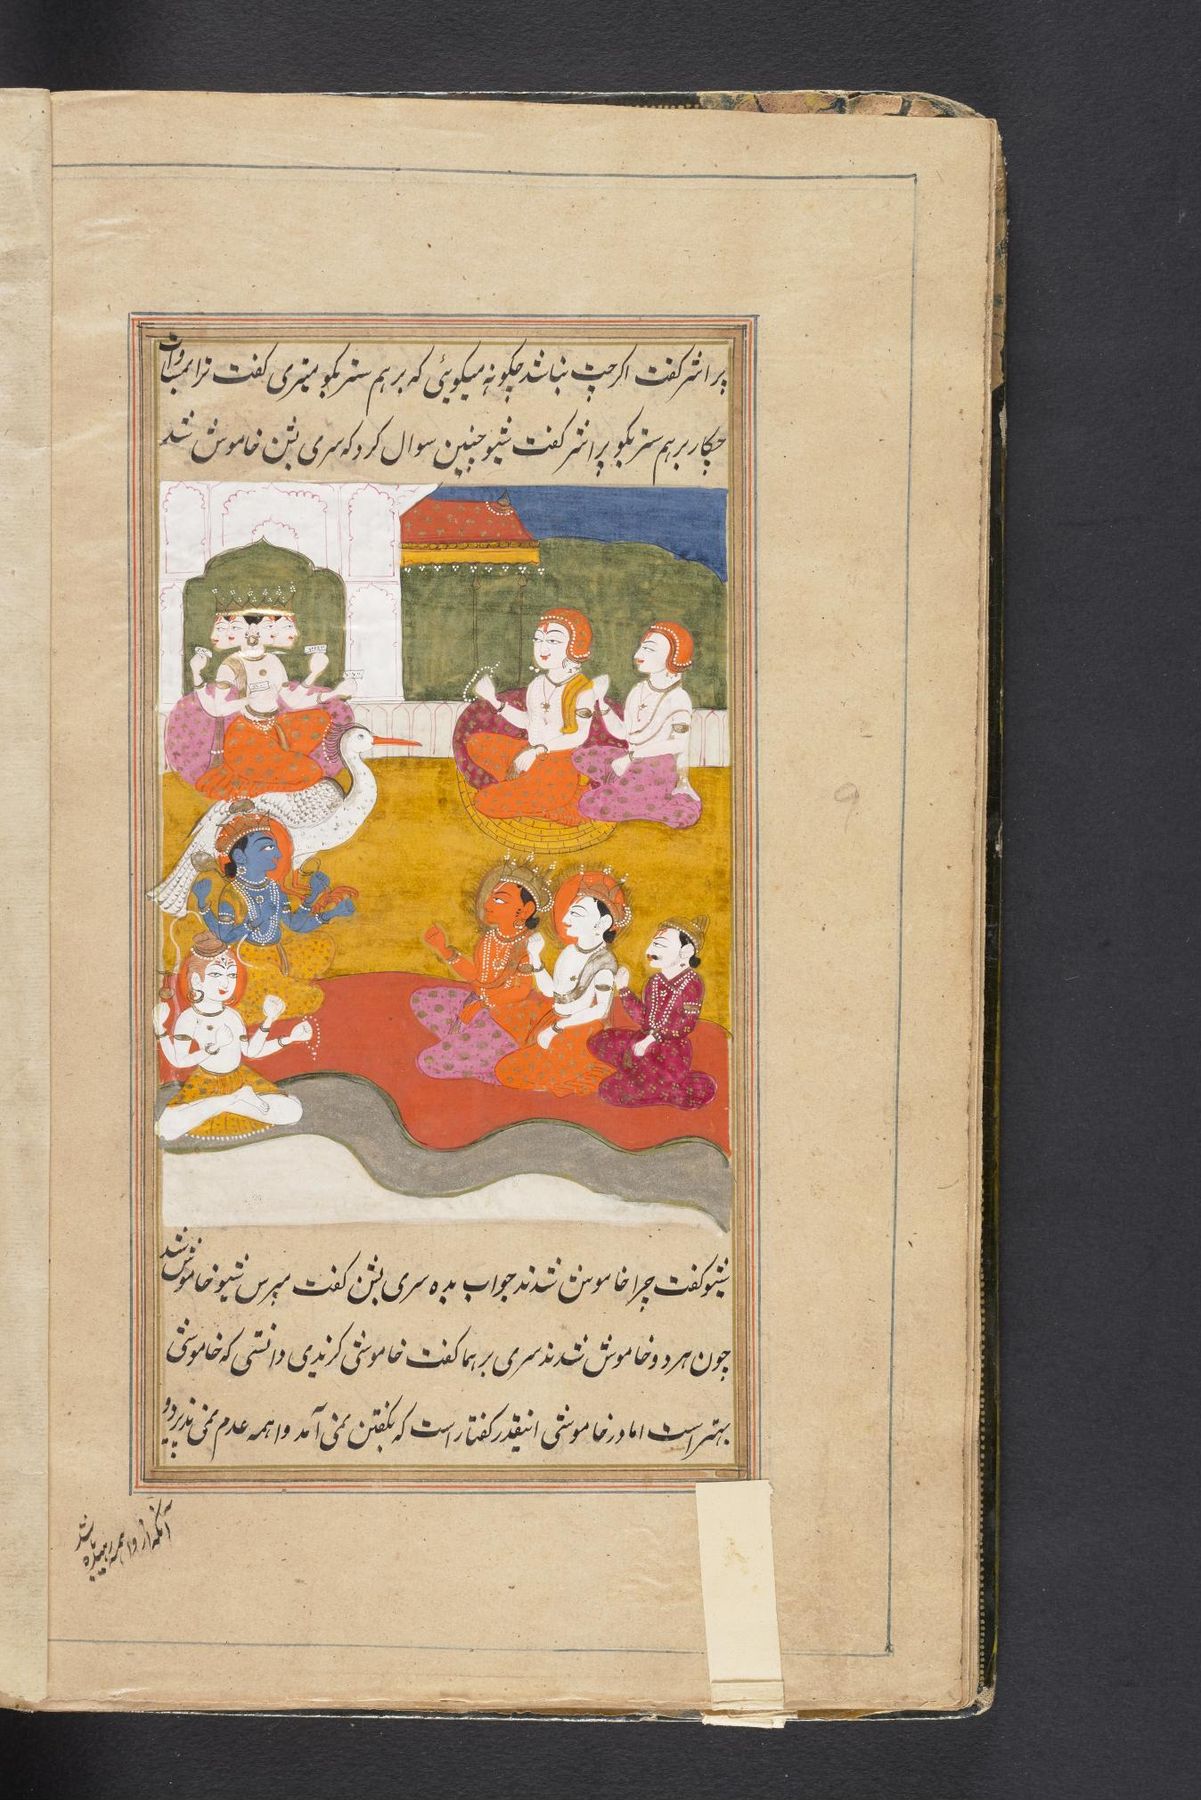 پراشر کفت اکر جپ نباشد چکونه میکویئی که برهم ستر بکو میتری کفت ترا بمباوان
چکار برهم ستر بکو پراشر کفت شیو چنین سوال کرد که سری بشن خاموش شد
شیو کفت چرا خاموش شدند جواب بده سری بشن کفت مپرس شیو خاموش شد
چون هر دو خاموش شدند سری برهما کفت خاموشی کزیدی دانستی که خاموشی
بهتر است اما در خاموشی اینقدر کفتار است که بکفتن نمی آمد واهمه عدم نمی پذیرد و
آنکه از واهمه رهیده باشد